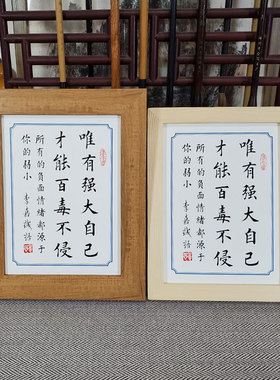 唯有强大自己
才能百毒不侵
所有的负面情绪都源于
你的弱小 李嘉诚话
唯有强大自己
才能百毒不侵
所有的负面情绪都源于
你的弱小 李嘉诚话